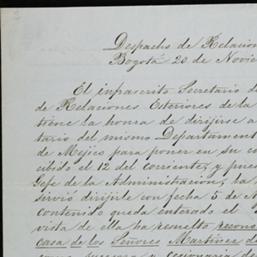 Despacho de Relacion
Bogotá 20 de Novie
El infrascrito Secretario d
de Relaciones Exteriores de la
tiene la honra de dirijirse a
tario del mismo Departament
de Mejico para poner en su co
cibido el 12 del corriente, y pue
Gefe de la Administracion, la
servio dirijirle con fecha 5 de A
contenido queda enterado el
vista de ella ha resuelto recono
casa de los Señores Martinez de
como sucesora y cesionaria de